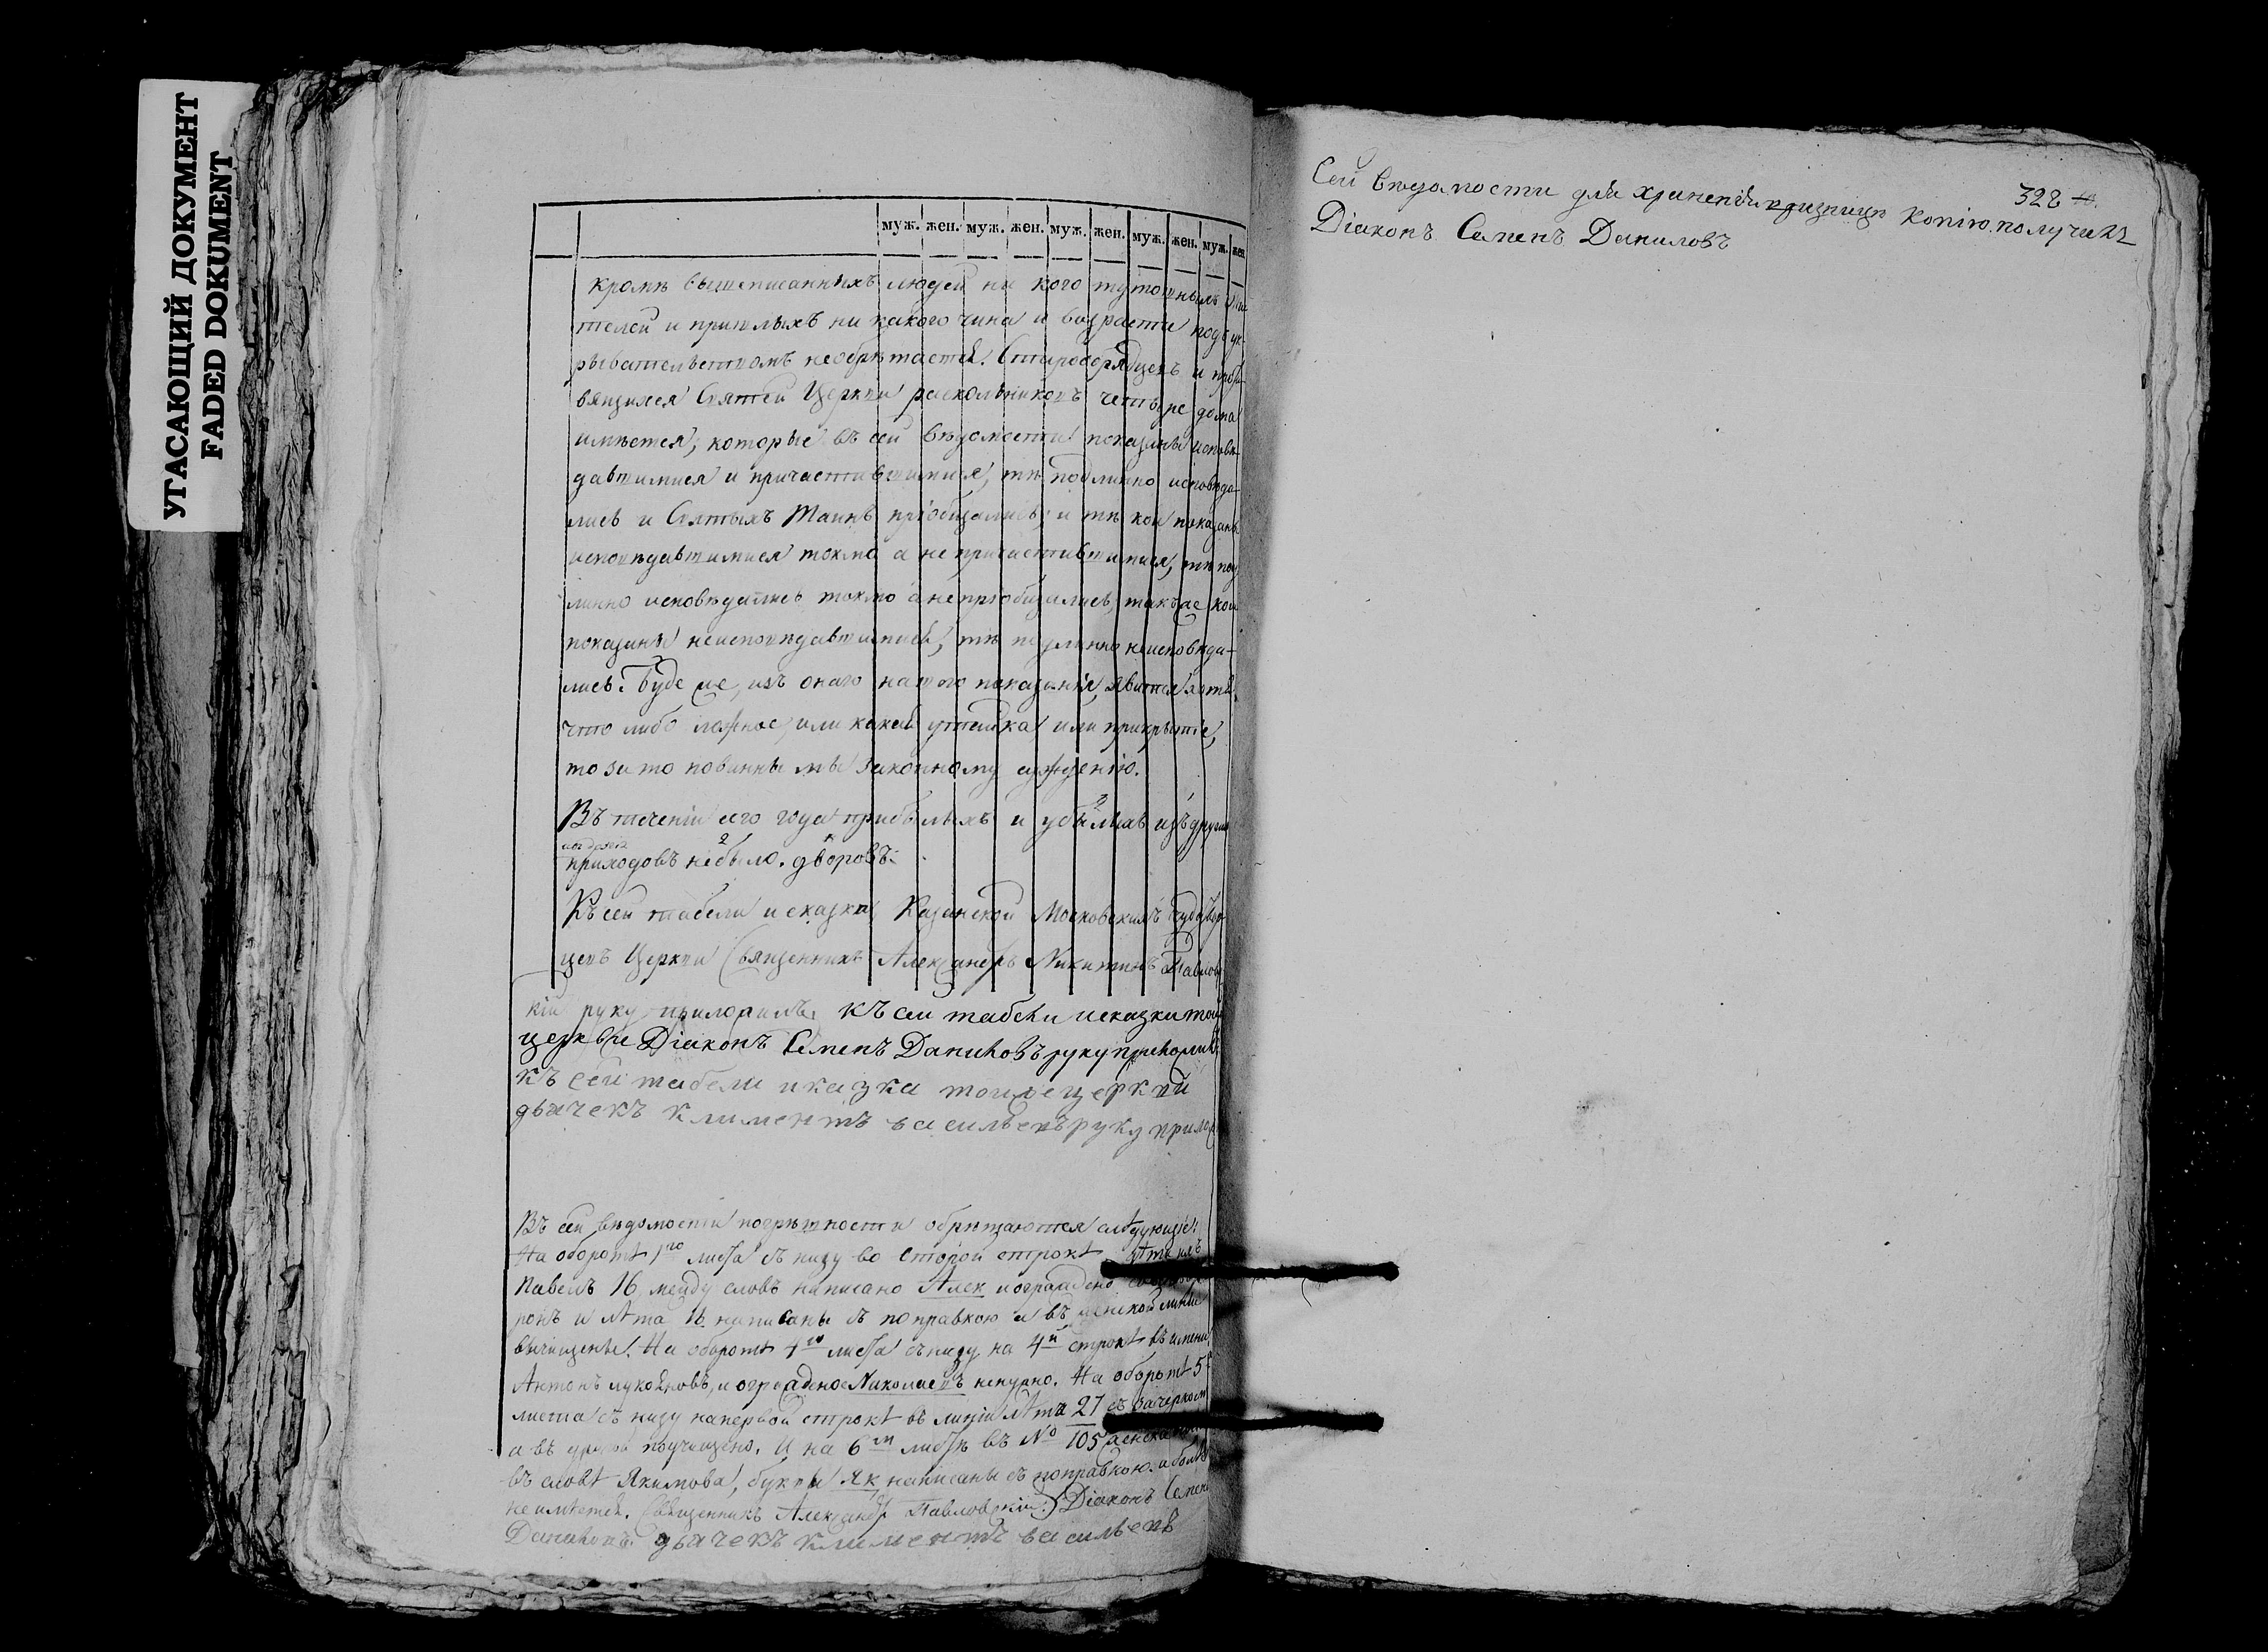 УТАСАЮЩИЙ ДОКУМЕНТ
FADED DOKUMENT
муж. жен. муж. жен. муж. жен. муж. жен. муж. жен.
Кромѣ вышеписанныхъ людей ни кого тутошныхъ жи-
телей и пришлыхъ ни какого чина и возраста подъ ук-
рывательствомъ необрѣтается. Старообрядцевъ и
Святей Церкви раскольниковъ четыре дома
имѣется; которые въ сей вѣдомости показаны исповѣ-
давшимися и причастившимися, тѣ подлинно исповѣда-
лись и Святыхъ Таинъ пріобщались; и тѣ кои показаны
исповѣдавшимися токмо а не причастившимися, тѣ под-
линно исповѣдались токмо а не пріобщались, такъ же кои
показаны неисповѣдавшимися, тѣ подлинно неисповѣда-
лись. Буде же изъ онаго нашего показанія, явится хотя
что либо ложное, или какая утайка или прикрытіе,
то за то повинны мы законному сужденію.
Въ теченіи сего года прибылыхъ и убылыхъ изъ другихъ
приходовъ небыло. дворовъ.
Къ сей табели и сказки Казанской Московскихъ Чудотвор-
цевъ Церкви Священникъ Александръ Никитинъ Павловс-
кій руку приложилъ. Къ сей табели исказки той
церкви Діаконъ Семенъ Даниловъ руку приложилъ
Къ сей табели иказка тойже церкви
дьячекъ климентъ васильевъ руку прилож
Въ сей вѣдомости погрѣшности обрѣщаются слѣдующіе:
На оборотѣ 1го листа съ низу во второй строкѣ
Павелъ 16, между словъ написано Алек и ограждено
и лѣта 16 написаны съ поправкою а въ женской линіи
вычищены. На оборотѣ 4го листа съ низу на 4й строкѣ въ имени
Антонъ лукояновъ, и огражденое Николаевъ ненужно. На оборотѣ 5го
листа съ низу напервой строкѣ въ линіи лѣта 27 съ
а въ другой почищено. И на 6м листѣ въ No 105
въ словѣ Якимова, буквы Як написаны съ поправкою. а болѣе
не имѣется. Священникъ Александръ Павловскій. Діаконъ Семенъ
Даниловъ. дьячекъ климентъ васильевъ
328
Сей вѣдомости для храненія вризницѣ Копію получилъ
Діаконъ Семенъ Даниловъ